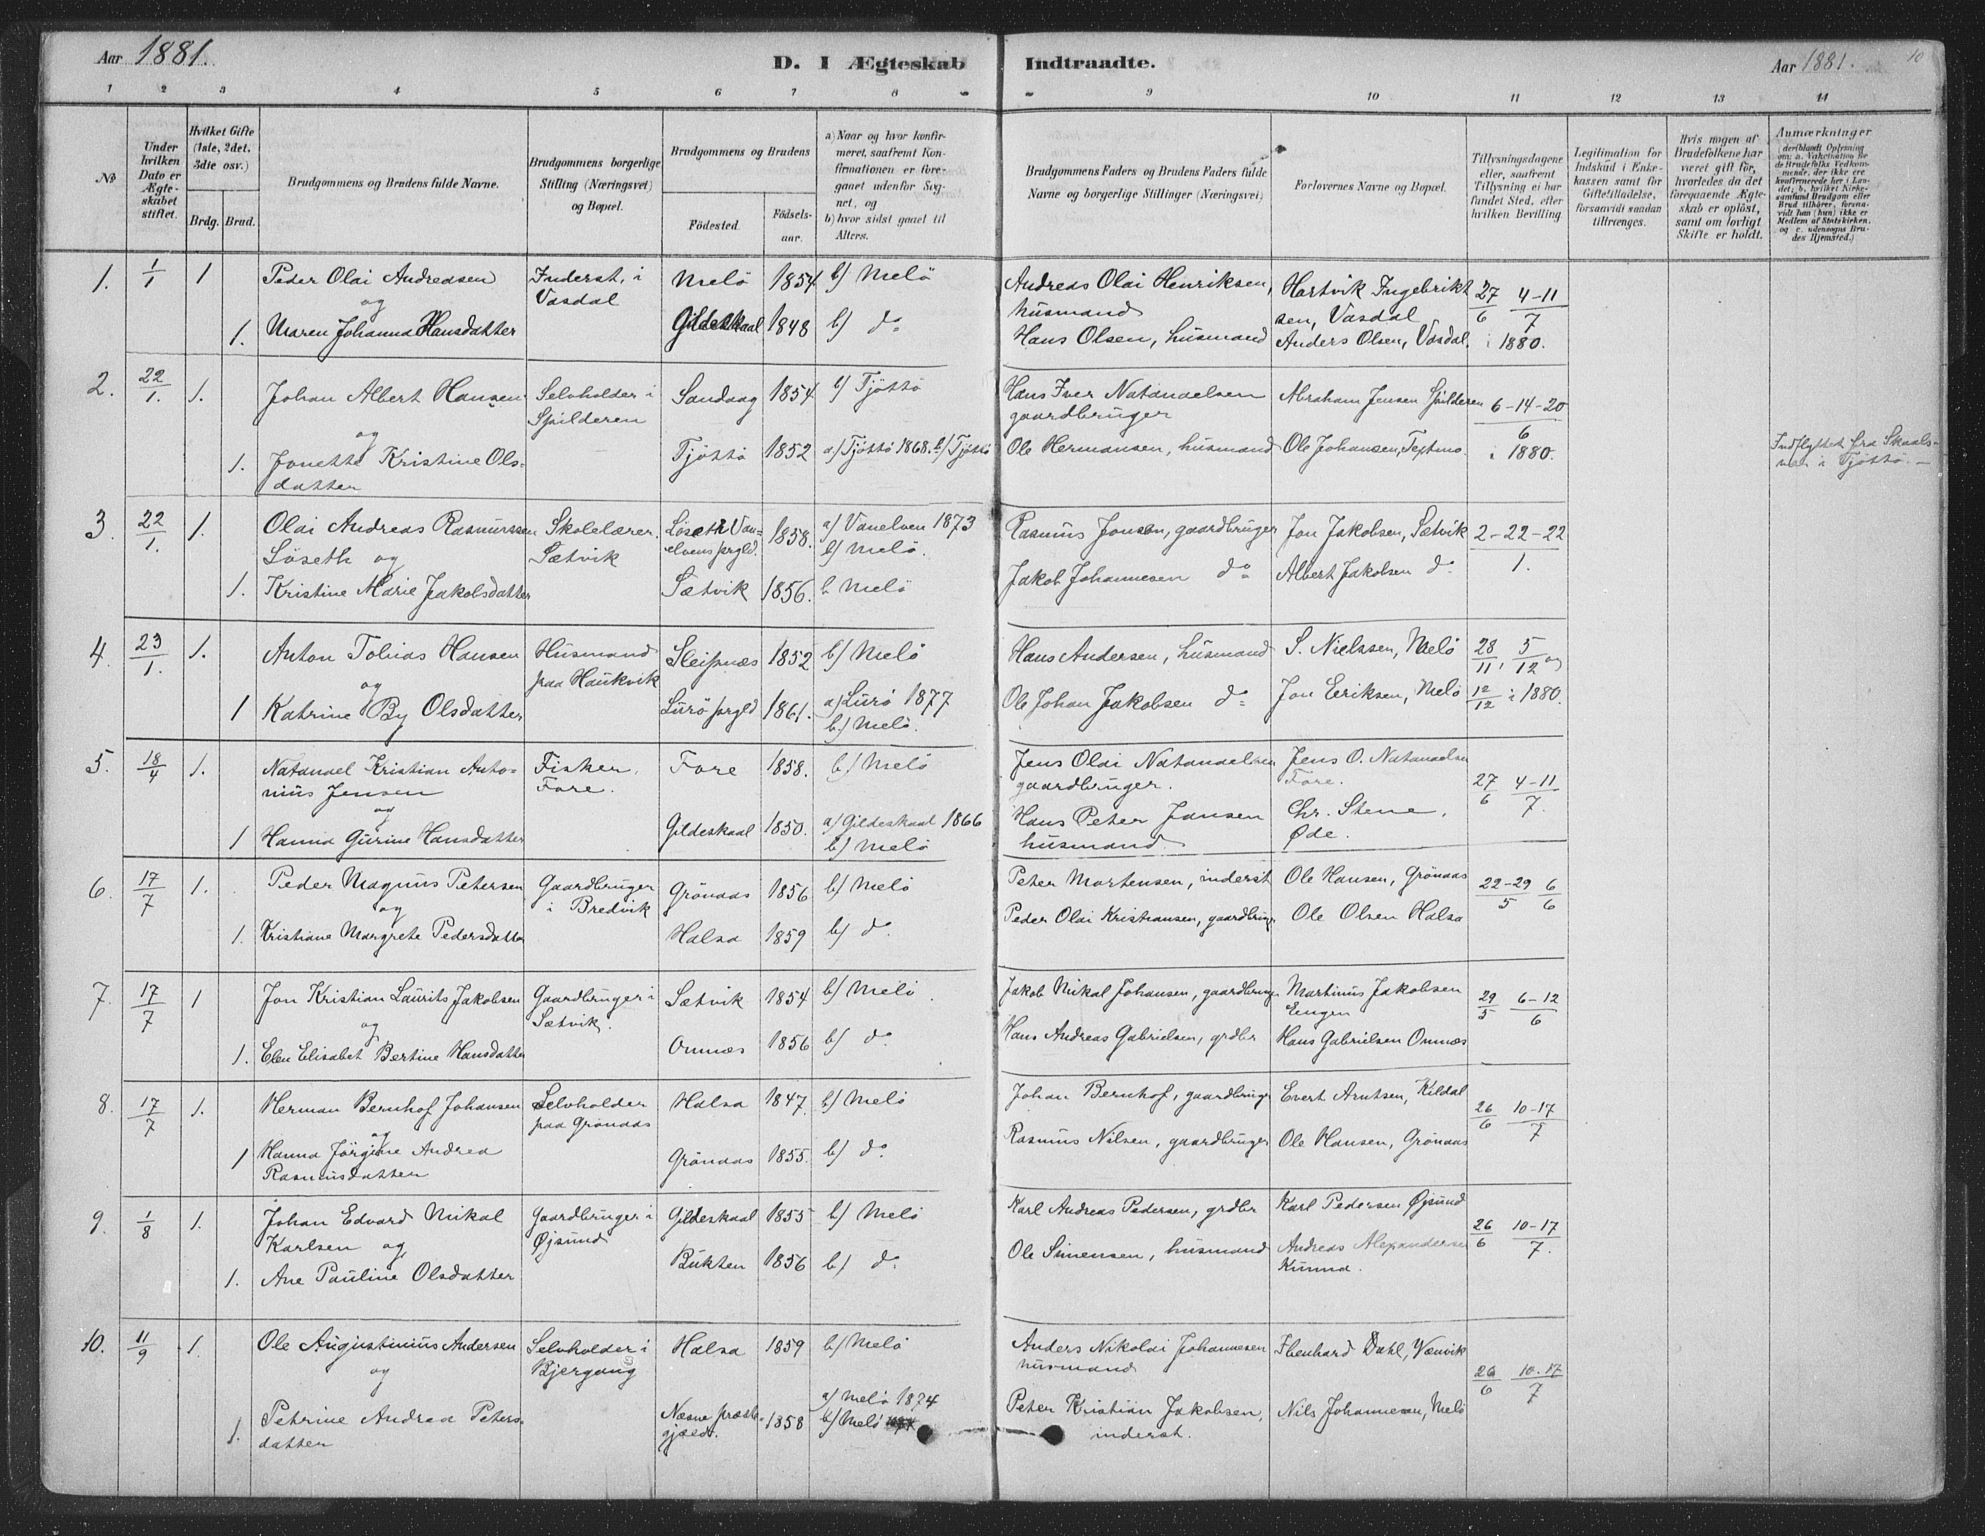 Aar 1881.
D. I Ægteskab Indtraadte.
Aar 1881. 10
1 2 3 4 5 6 7 8 9 10 11 12 13 14
No
Under hvilken Dato er Ægteskabet stiftet.
Hvilket Gifte (1ste, 2det, 3die osv.)
Brdg. Brud.
Brudgommens og Brudens fulde Navne.
Brudgommens borgerlige Stilling (Næringsvei) og Bopæl.
Brudgommens og Brudens
Fødested. Fødselsaar.
a) Naar og hvor konfirmeret, saafremt Konfirmationen er foregaaet udenfor Sognet, og
b) hvor sidst gaaet til Alters.
Brudgommens Faders og Brudens Faders fulde Navne og borgerlige Stillinger (Næringsvei)
Forlovernes Navne og Bopæl.
Tillysningsdagene eller, saafremt Tillysning ei har fundet Sted, efter hvilken Bevilling.
Legitimation for Indskud i Enkekassen samt for Giftetilladelse, forsaavidt saadan tiltrænges.
Hvis nogen af Brudefolkene har været gift før, hvorledes da det foregaaende Ægteskab er opløst, samt om lovligt Skifte er holdt.
Anmærkninger
1. 1/1 1 Peder Olai Andreasen Inderst, i Melö 1854 b) Melö Andreas Olai Henriksen, Hartvik Ingebrikt 27/6 4-11/7
og Vasdal husmand sen, Vasdal
1. Maren Johanna Hansdatter Gildeskaal 1848 b) do Hans Olsen, husmand Anders Olsen, Vasdal. i 1880.
2. 22/1. 1. Johan Albert Hansen Selvholder i Sandaag 1854 Tjöttö Hans Iver Natanaelsen Abraham Jensen Spilderen 6-14-20/6
og Spilderen gaardbruger
1. Jonette Kristine Ols- Tjöttö 1852 a) Tjöttö 1868. b) Tjöttö Ole Hermansen, husmand Ole Johansen, i 1880. Indflyttet fra
datter i Tjöttö.
3. 22/1. 1. Olai Andreas Rasmussen Skolelærer. Löseth Van- 1858. a) Vanelven 1873 Rasmus Jonsen, gaardbruger Jon Jakobsen, Sætvik 2-22-22/1.
Löseth og Sætvik elvens prgld. b) Melö.
1. Kristine Marie Jakobsdatter Sætvik 1856. b Melö Jakob Johannesen do Albert Jakobsen do
4. 23/1. 1. Anton Tobias Hansen Husmand Sleipnæs 1852 b) Melö Hans Andersen, husmand S. Nielssen, Melö 28/11, 5/12 og
og paa Haukvik
1 Katrine By Olsdatter Lurö prgld 1861. a) Lurö 1877 Ole Johan Jakobsen do Jon Eriksen, Melö 12/12 i 1880.
b) Melö.
5. 18/4 1. Natanael Kristian Anto- Fisker. Fore 1858. b) Melö Jens Olai Natanaelsen Jens O. Natanaelsen 27/6 4-11/7.
nius Jensen Fore. gaardbruger. Fore.
og
1 Hanna Gurine Hansdatter Gildeskaal 1850. a) Gildeskaal 1866 Hans Peter Jansen Chr. Stene,
b) Melö husmand. Øde.
6. 17/7 1. Peder Magnus Petersen Gaardbruger Grönaas 1856 b) Melö Peter Mortensen, inderst Ole Hansen, Grönaas 22-29/5 6/6
og i Bredvik
1. Kristiane Margrete Pedersdatter Halsa 1859 b) do Peder Olai Kristiansen, gaardbruger Ole Olsen Halsa
7. 17/7 1 Jon Kristian Laurits Jakobsen Gaardbruger i Sætvik 1854 b) Melö Jakob Mikal Johansen, gaardbruger Martinus Jakobsen 29/5 6-12/6
og Sætvik. Engen
1. Elen Elisabet Bertine Hansdatter Onnæs 1856 b) do Hans Andreas Gabrielsen, grdbr Hans Gabrielsen Onnæs
8. 17/7 1. Herman Bernhof Johansen Selvholder Halsa 1847. b) Melö Johan Bernhof, gaardbruger Evert Arntsen, Kildal 26/6 10-17/7
og paa Grönaas
1 Hanna Jörgine Andrea Grönaas 1855. b) do Rasmus Nilsen, gaardbruger Ole Hansen, Grönaas
Rasmusdatter
9. 1/8 1. Johan Edvard Mikal Gaardbruger i Gildeskaal 1855 b) Melö Karl Andreas Pedersen, grdbr Karl Pedersen Øjsund 26/6 10-17/7.
Karlsen og Øjsund
1. Ane Pauline Olsdatter Bukten 1856 b) do Ole Simensen, husmand Andreas Alexandersen
Kunna.
10. 11/9 1. Ole Augustinius Andersen Selvholder i Halsa 1859 b) Melö Anders Nikolai Johannesen Ebenhard Dahl, Vænvik 26/6 10.17/7
og Bjergang husmand
1. Petrine Andrea Peters- Næsne præste- 1858 a) Melö 1874 Peter Kristian Jakobsen, Nils Johannesen, Melö
datter gjæld. b) Melö inderst.